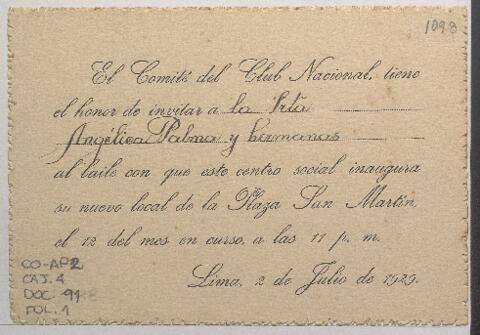 1098
El Comité del Club Nacional, tiene
el honor de invitar a la Srtā
Angélica Palma y hermanas
al baile con que este centro social inaugura
su nuevo local de la Plaza San Martín,
el 12 del mes en curso, a las 11 p. m.
Lima, 2 de Julio de 1929.
CO-AP2
CAJ. 4
DOC. 91
FOL. 1